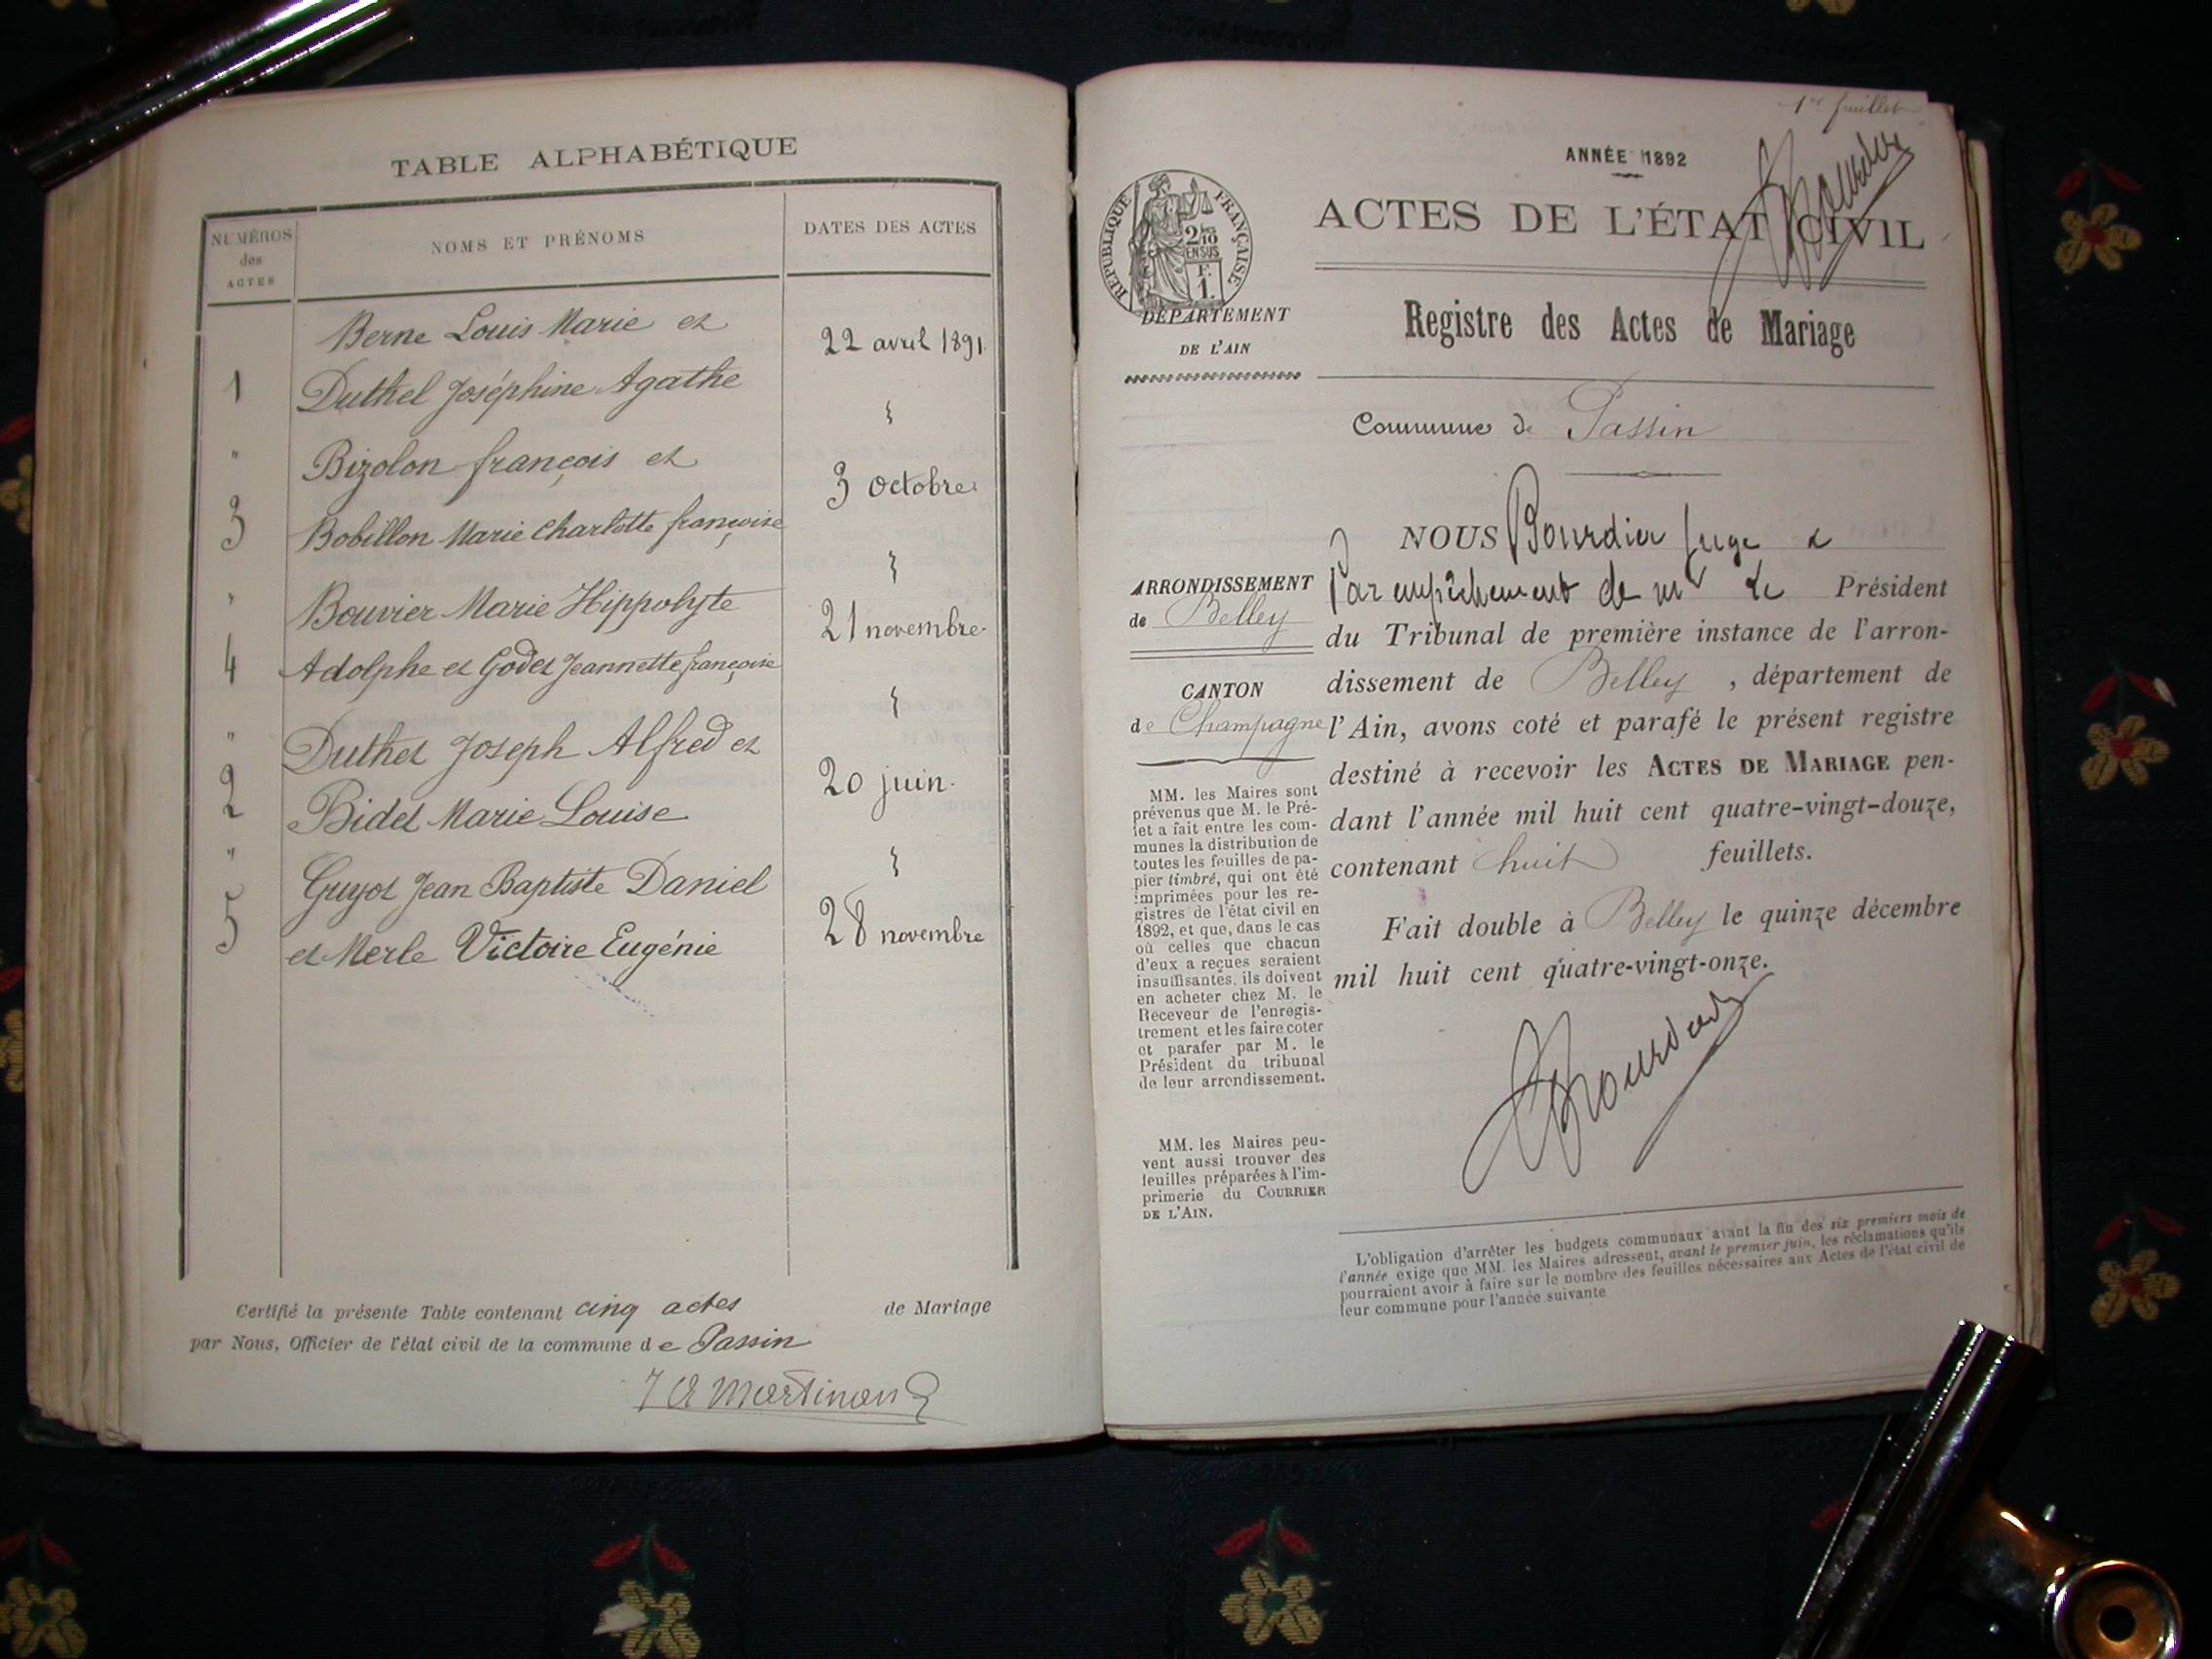 TABLE ALPHABÉTIQUE
NUMÉROS des ACTES
NOMS ET PRÉNOMS
DATES DES ACTES
Berne Louis Marie et
22 avril 1891
1 Duthel Joséphine Agathe
" Bizolon françois et
3 octobre
3 Bobillon Marie Charlotte françoise
" Bouvier Marie Hippolyte
21 novembre
4 Adolphe et Godet Jeannette françoise
" Duthel Joseph Alfred et
2 Bidet Marie Louise
20 juin
" Guyot Jean Baptiste Daniel
5 et Merle Victoire Eugénie
28 novembre
Certifié la présente Table contenant cinq actes de Mariage
par Nous, Officier de l'état civil de la commune de Passin
Martinand
1er feuillet
ANNÉE 1892
ACTES DE L'ÉTAT CIVIL
RÉPUBLIQUE FRANÇAISE
2/10 EN SUS
F. 1.
DÉPARTEMENT
DE L'AIN
Registre des Actes de Mariage
Commune de Passin
ARRONDISSEMENT
de Belley
CANTON
de Champagne
MM. les Maires sont
prévenus que M. le Pré-
fet a fait entre les com-
munes la distribution de
toutes les feuilles de pa-
pier timbré, qui ont été
imprimées pour les re-
gistres de l'état civil en
1892, et que, dans le cas
où celles que chacun
d'eux a reçues seraient
insuffisantes, ils doivent
en acheter chez M. le
Receveur de l'enregis-
trement et les faire coter
et parafer par M. le
Président du tribunal
de leur arrondissement.
MM. les Maires peu-
vent aussi trouver des
feuilles préparées à l'im-
primerie du COURRIER
DE L'AIN.
NOUS Bourdier Juge
Par empêchement de mr le Président
du Tribunal de première instance de l'arron-
dissement de Belley, département de
l'Ain, avons coté et parafé le présent registre
destiné à recevoir les ACTES DE MARIAGE pen-
dant l'année mil huit cent quatre-vingt-douze,
contenant huit feuillets.
Fait double à Belley le quinze décembre
mil huit cent quatre-vingt-onze.
L'obligation d'arrêter les budgets communaux avant la fin des six premiers mois de
l'année exige que MM. les Maires adressent, avant le premier juin, les réclamations qu'ils
pourraient avoir à faire sur le nombre des feuilles nécessaires aux Actes de l'état civil de
leur commune pour l'année suivante